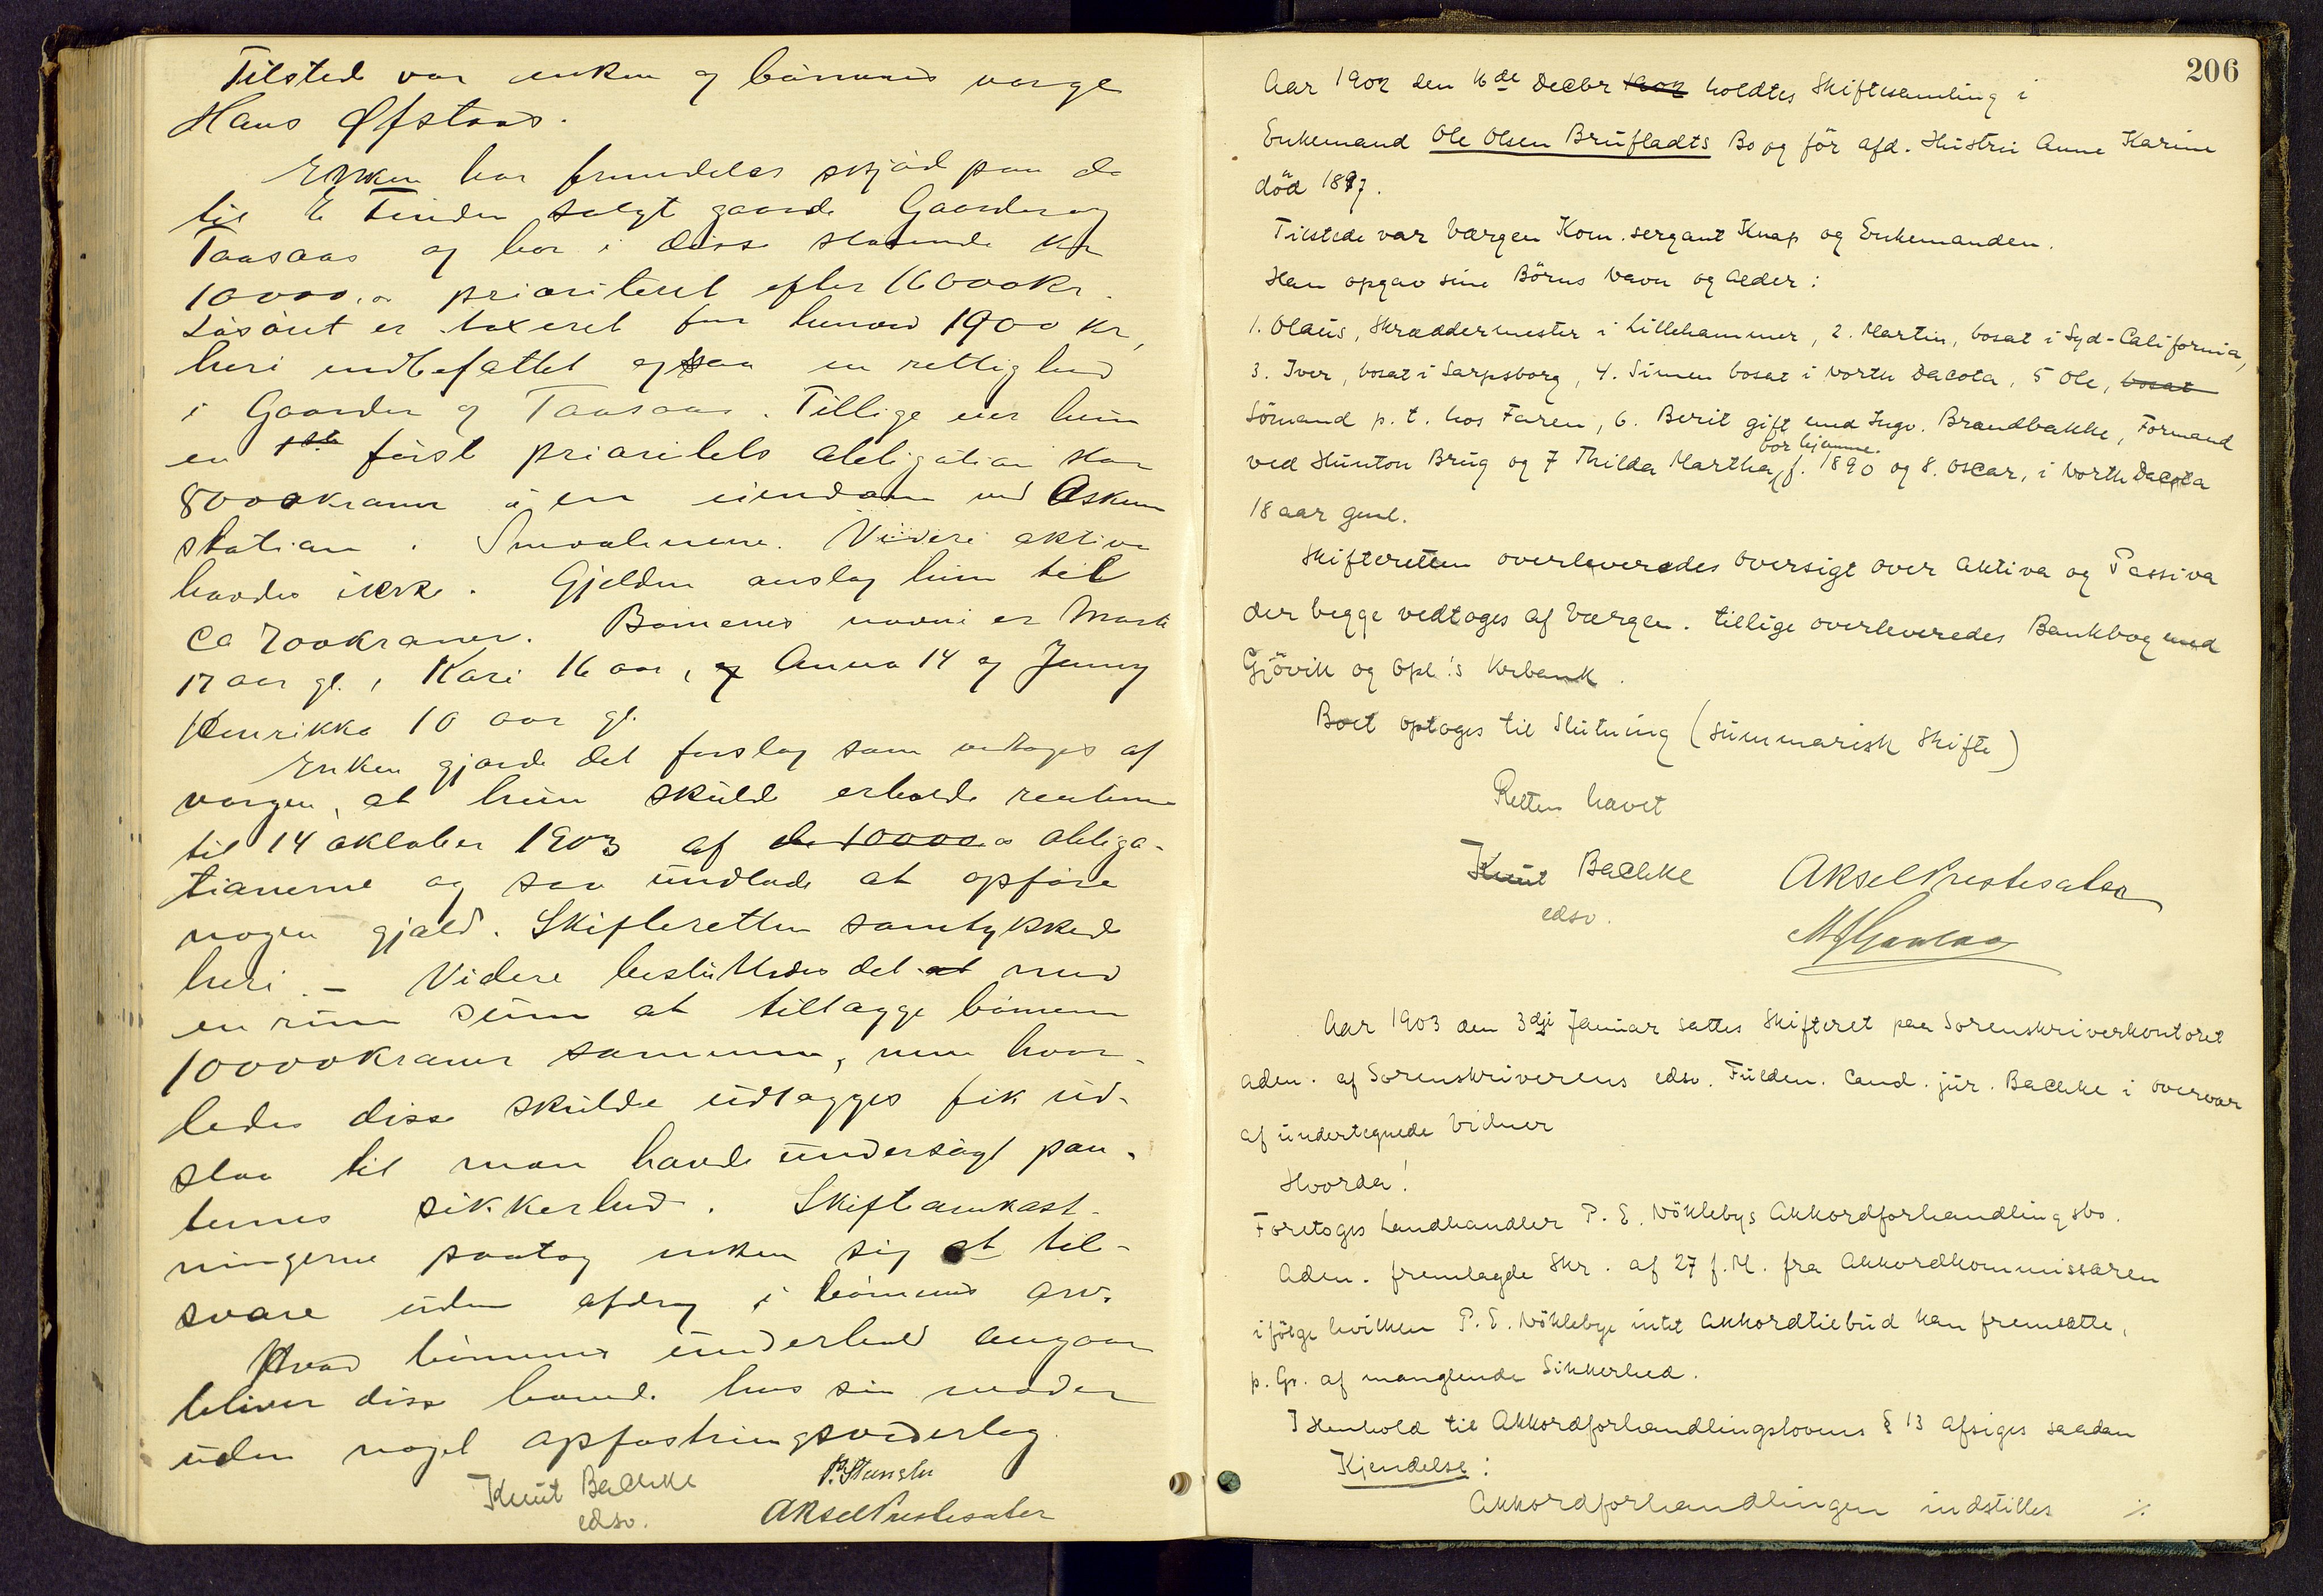 Tilstede var enken og börnenes verge
Hans Öfstaas.
Enken har fremdeles skjöd paa de
til E Tinden solgt gaarde Gaarder og
Taasaas og har i disse staaende Kr
10000,00 prioriteret efter 16000 Kr.
Lösöret er taxeret for henved 1900 Kr,
heri indbefattet ogsaa en rettighed
i Gaarder og Taasaas. Tillige eier hun
en 1ste först prioritets obligation stor
8000 kroner i en eiendom ved Askim
station i Smaalenene. Videre aktiva
havdes ikke. Gjelden anslog hun til
ca 700 kroner. Börnenes navne er Marte
17 aar gl., Kari 16 aar, og Anna 14 og Jenny
Henrikke 10 aar gl.
Enken gjorde det forslag som vedtoges af
vergen, at hun skulde erholde renterne
til 14 oktober 1903 af de 10000.00 obliga-
tionerne og saa undlade at opföre
nogen gjæld. Skifteretten samtykkede
heri. – Videre besluttedes det at med
en rund sum at tillægge börnene
10000 kroner sammen, men hvor-
ledes disse skulde udlægges fik ud-
staa til man havde undersögt pan-
tenes sikkerhed. Skifteomkost-
ningerne paatog enken sig at til-
svare uden afdrag i börnenes arv.
Hvad börnenes underhold angaar
bliver disse hævede hos sin moder
uden noget opfostringsvederlag.
Knut Bachke
edsv.
Aksel Prestesater
206
Aar 1902 den 16de Decbr 1902 holdtes Skiftesamling i
Enkemand Ole Olsen Brufladts Bo og för afd. Hustru Anne Karine
död 1897.
Tilstede var Værgen Kom. sergant Knap og Enkemanden.
Han opgav sine Börns Navn og Alder:
1. Olaus, Skræddermester i Lillehammer, 2. Martin, bosat i Syd-California,
3. Iver, bosat i Sarpsborg, 4. Simen bosat i North Dacota, 5 Ole, bosat
Sömand p. t. hos Faren, 6. Berit gift med Ingv. Brandbakke, Formand
bor hjemme.
ved Hunton Brug og 7 Thilda Martha, f. 1890 og 8. Oscar, i North Dacota
18 aar gml.
Skifteretten overleveredes Oversigt over Aktiva og Passiva
der begge vedtoges af Værgen. Tillige overleveredes Bankbog med
Gjövik og Opl.'s Krbank.
Boet optoges til Slutning (Summarisk Skifte)
Retten hævet
Knut Bachke Aksel Prestesater
edsv.
Aar 1903 den 3dje Januar sattes Skifteret paa Sorenskriverkontoret
Aden. af Sorenskriverens edsv. Fuldm. Cand. jur. Bachke i Overvær
af undertegnede Vidner
Hvorda!
Foretoges Landhandler P. E. Nöklebys Akkordforhandlingsbo.
Aden. fremlagde Skr. af 27 f. M. fra Akkordkommissæren
ifölge hvilken P. E. Nöklebye intet Akkordtilbud kan fremsætte,
p. Gr. af manglende Sikkerhed.
I Henhold til Akkordforhandlingslovens § 13 afsiges saadan
Kjendelse:
Akkordforhandlingen indstilles ∕.